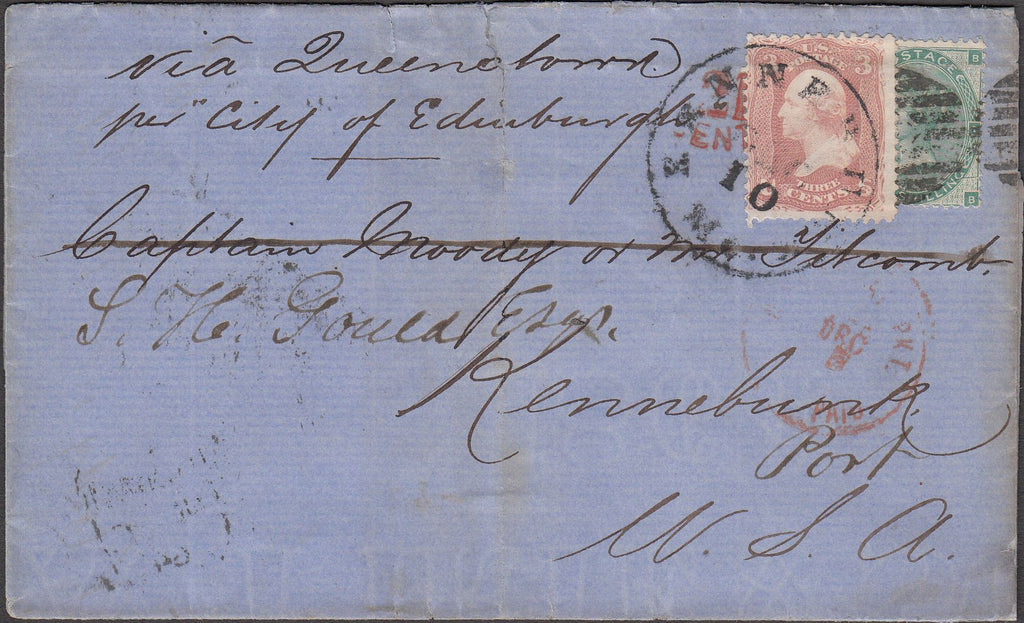 viâ Queenstown
per "City of Edinburgh
Captain Moody or Mr Titcomb.
S. H. Gould Esqr.
Kennebunk
Port
U. S. A.
U.S.
3
THREE
CENTS
STAGE
LLING
B
B
CENT
10
DEC
PAID